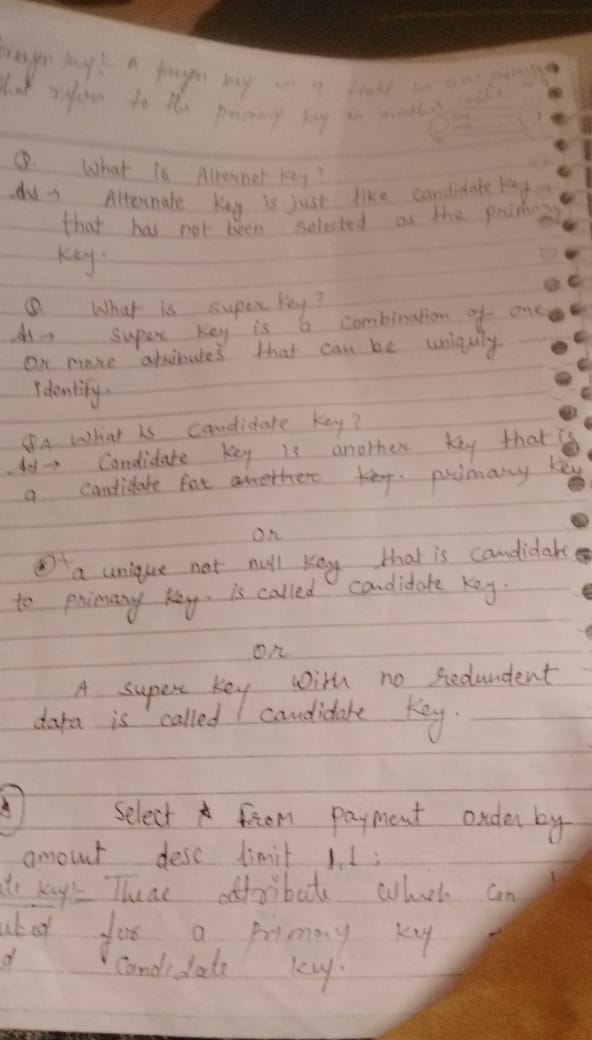 key:- A foreign key is a field in one
that refers to the primary key in another table
Q. What is Alternet key?
Ans → Alternate key is just like candidate key
that has not been selected as the primary
key.
Q What is super key?
As → super key is a combination of one
or more attributes that can be uniquly
Identify.
Q4 What is Candidate key?
Ans → Candidate key is another key that is
a candidate for another key. primary key
or
a unique not null key that is candidate
to primary key. is called candidate key.
or
A super key with no redundent
data is called candidate key.
Select * from payment order by
amount desc limit 1,1;
key:- Those attribute which can
for a primary key
Candidate key.